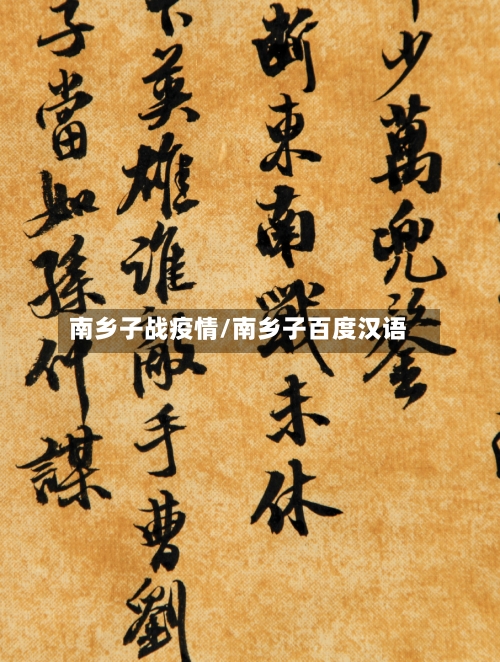 少萬兜鍪
斷東南戰未休
下英雄誰敵手曹劉
子當如孫仲謀
南乡子战疫情/南乡子百度汉语